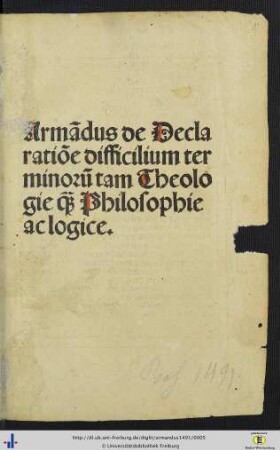 Armādus de Decla
ratiōe difficilium ter
minorū tam Theolo
gie q̄ȝ Philosophie
ac logice.
1491.
http://dl.ub.uni-freiburg.de/diglit/armandus1491/0005
© Universitätsbibliothek Freiburg